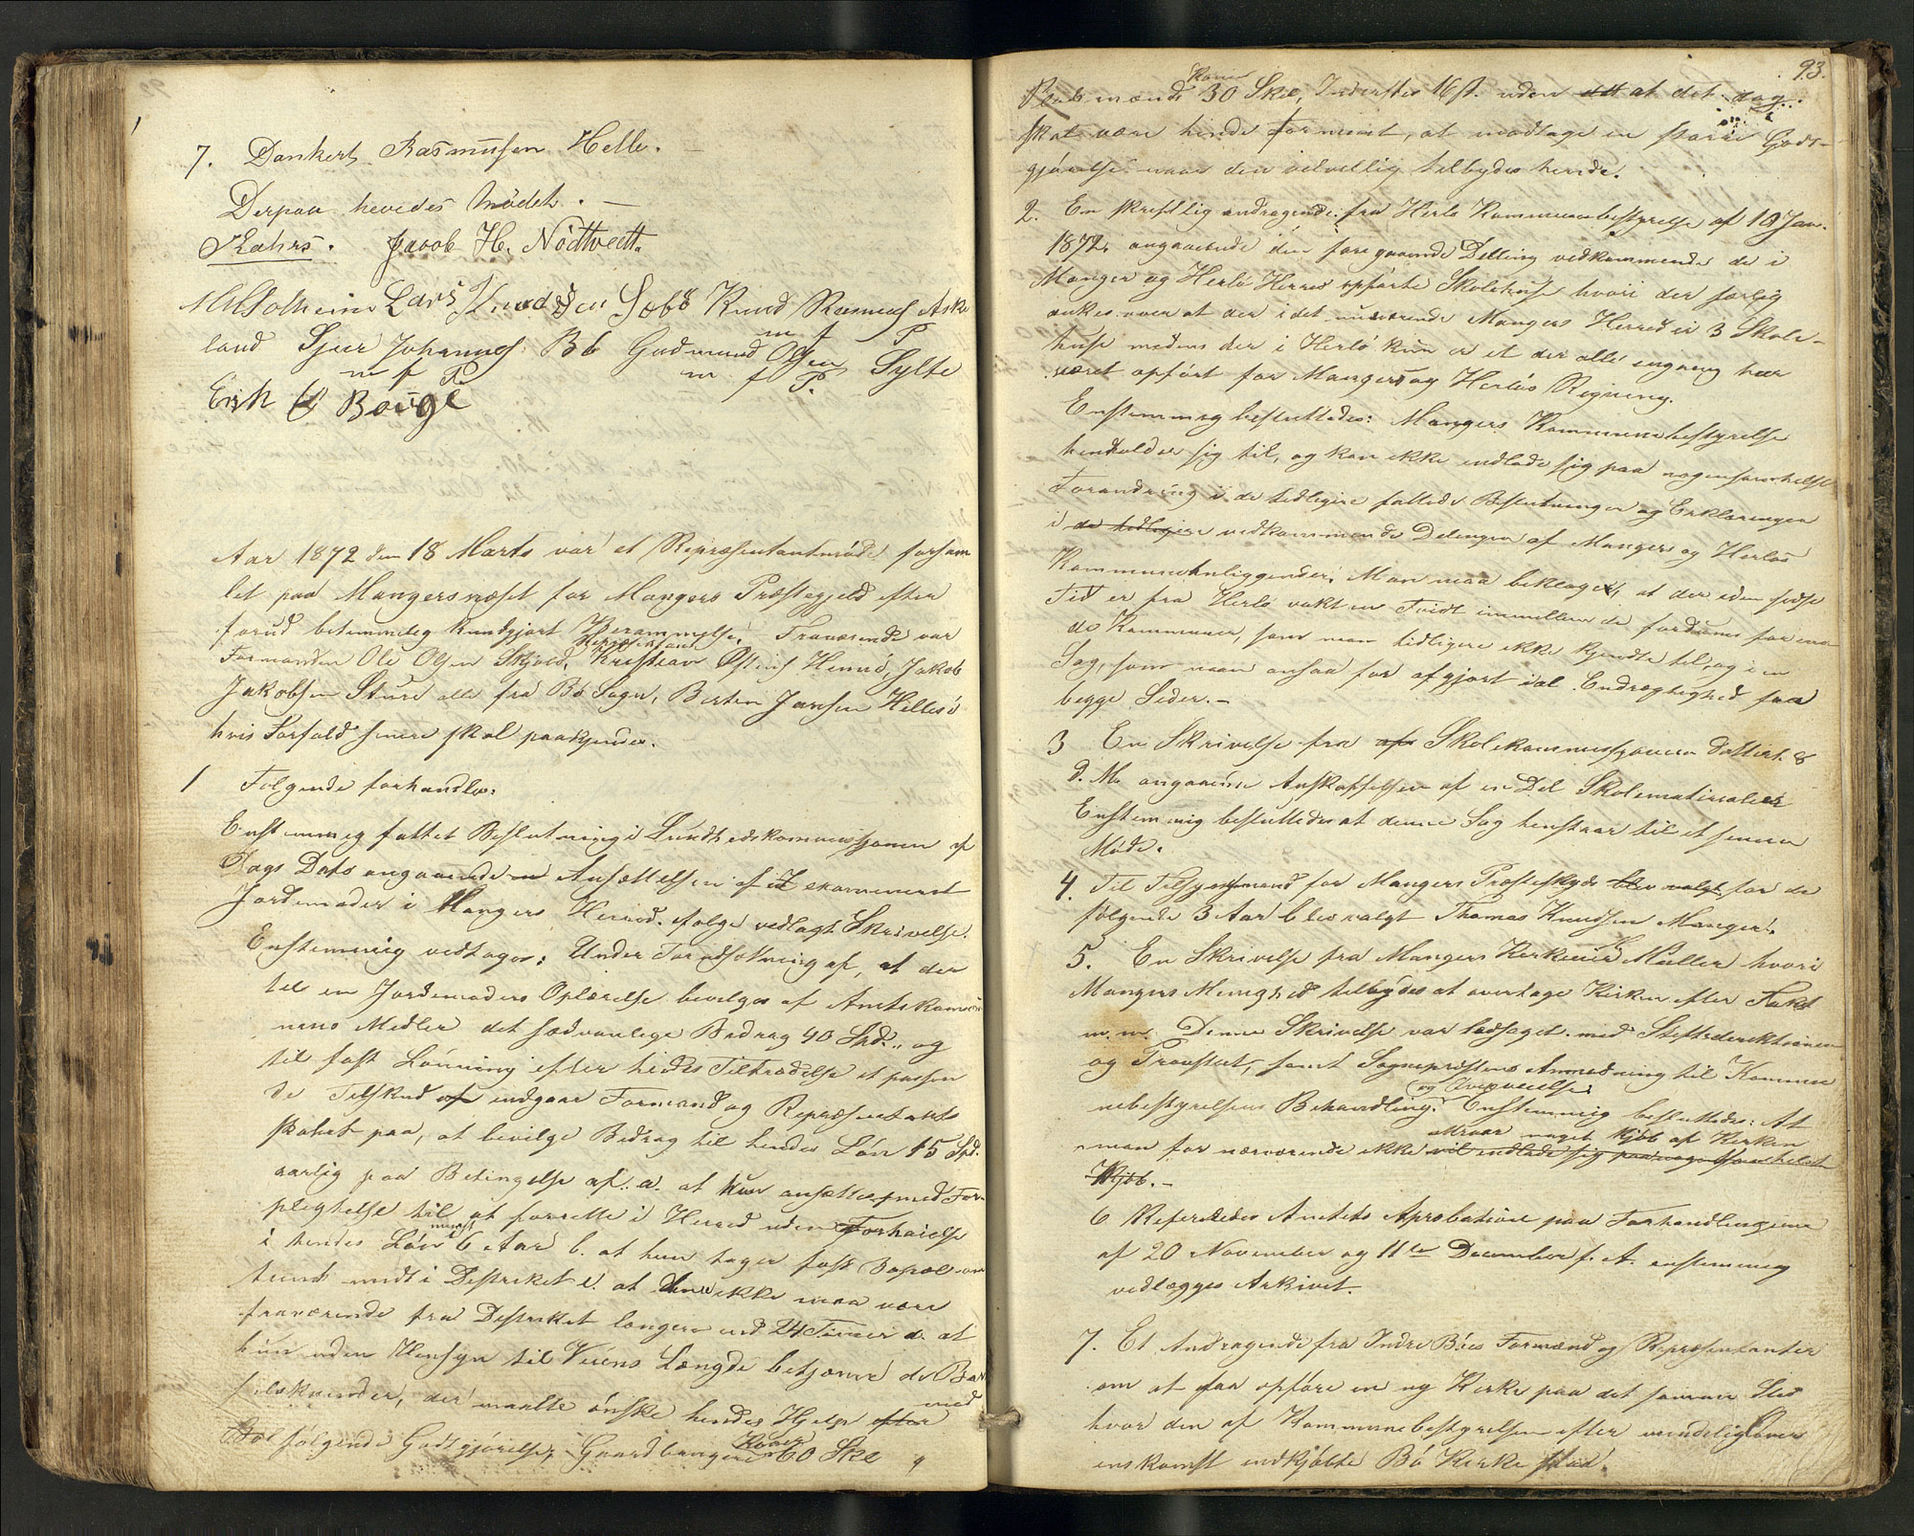 7. Dankert Rasmussen Helle.
Derpaa hevedes Mødet. —
Kahrs. Jacob H. Nödtvedt.
Solheim Lars Knudsen Sæbø Knud Rasmus Aske
land Sjur Johannes. Bö Gudmund Olsen Sylte
m f P. m. f P. m f P
Erik O Bouge
Aar 1872 den 18 Marts var et Repræsentantmøde forsam
let paa Mangersnæset for Mangers Præstegjeld efter
forud betimmelig kundgjort Berammelse. Fraværende var
Formanden Ole Olsen Skjold, Repræsentant Kristian Østens Hennø, Jakob
Jakobsen Sture alle fra Bø Sogn, Berten Jansen Hellesø
hvis Forfald senere skal paakjendes.
1 Følgende forhandles:
Enstemmig fattet Beslutning i Sundhedskommissjonen af
Dags Dato angaaende en Ansættelsen af et examineret
Jordemoder i Mangers Herred. ifølge vedlagt Skrivelse.
Enstemmig vedtoges: Under Forudsætning af, at der
til en Jordemoders Oplærelse bevilges af Amtskommu
nens Medler det sædvanlige Bidrag 40 Spd. og
til fast Lønning efter hendes Tiltrædelse et passen
de Tilskud af indgaar Formand og Repræsentant
skabet paa, at bevilge Bidrag til hendes Løn 15 Spd.
aarlig paa Betingelse af: a. at hun ansættes med For-
plegtelse til at forrette i Herred uden Forhøielse
i hendes Løn mindst 6 Aar b. at hun tager fast Bopæl om
trent midt i Destriktet c. at hun ikke maa være
fraværende fra Destriket længere end 24 Timer d. at
hun uden Hensyn til Veiens Længde betjener de Bar
selskvinder, der maatte ønske hendes Hjelp efter med
følgende Godtgjørelse, Gaardbrugere Koner 60 Sk
93.
Pladsmænds Koner 30 Skil, Inderster 16 s. uden dtt at det dog.
skal være hende formeent, at modtage en større Godt-
gjørelse naar den velvillig tilbydes hende.
2. En skriftlig andragende fra Herlø Kommunebestyrelse af 19 Jan.
1872, angaaende den foregaaende Delling vedkommende de i
Manger og Herlø Herred opførte Skolehuse hvori der særlig
ankes over at der i det nuværende Mangers Herred er 3 Skole-
huse medens der i Herlø kun er et der alle engang har
været opført for Mangers og Herløs Regning.
Enstemmig besluttedes: Mangers Kommunebestyrelse
henholder sig til, og kan ikke indlade sig paa nogensomhelst
Forandring i de tidligere fattede Beslutninger og Erklæringer
i de tidligere vedkommende Delingen af Mangers og Herløs
Kommuneanliggender. Man maa beklage, at der i den sidste
Tid er fra Herlø vakt en Tvidt imellem de fordums foreene
de Kommuner, som man tidligere ikke kjendte til, og i en
Sag, som man ansaa for afgjort i al Endrægtighed fra
begge Sider. -
3 En Skrivelse fra af Skolekommissjonen datteret 8
d. M. angaaende Anskaffelsen af en Del Skolematerialer
Enstemmig besluttedes at denne Sag henstaar til et senere
Møde.
4. Til Tilsynsmand for Mangers Præsteskyds blev valgt for de
følgende 3 Aar blev valgt Thomas Knudsen Manger.
5. En Skrivelse fra Mangers Kirkeeier Müller hvori
Mangers Menighed tilbydes at overtage Kirken efter Takst
m. m. Denne Skrivelse var ledsaget med Stiftsderektionen
og Provstiet, samt Sogneprestens Anmodning til Kommu
nebestyrelsens Behandling og Overveielse. Enstemmig besluttedes: At
man for nærværende ikke attraar noget Kjøb af Kirken vil indlade sig paa nogensomhelst
Kjøb. -
6 Refereredes Amtets Aprobation paa Forhandlingerne
af 20 November og 11te December f. A. enstemmig
vedlægges Arkivet.
7. Et Andragende fra Indre Bøes Formænd og Repræsentanter
om at faa opføre en ny Kirke paa det samme Sted
hvor den af Kommunebestyrelsen efter mindelig Over
enskomst indkjøbte Bø Kirke stod.